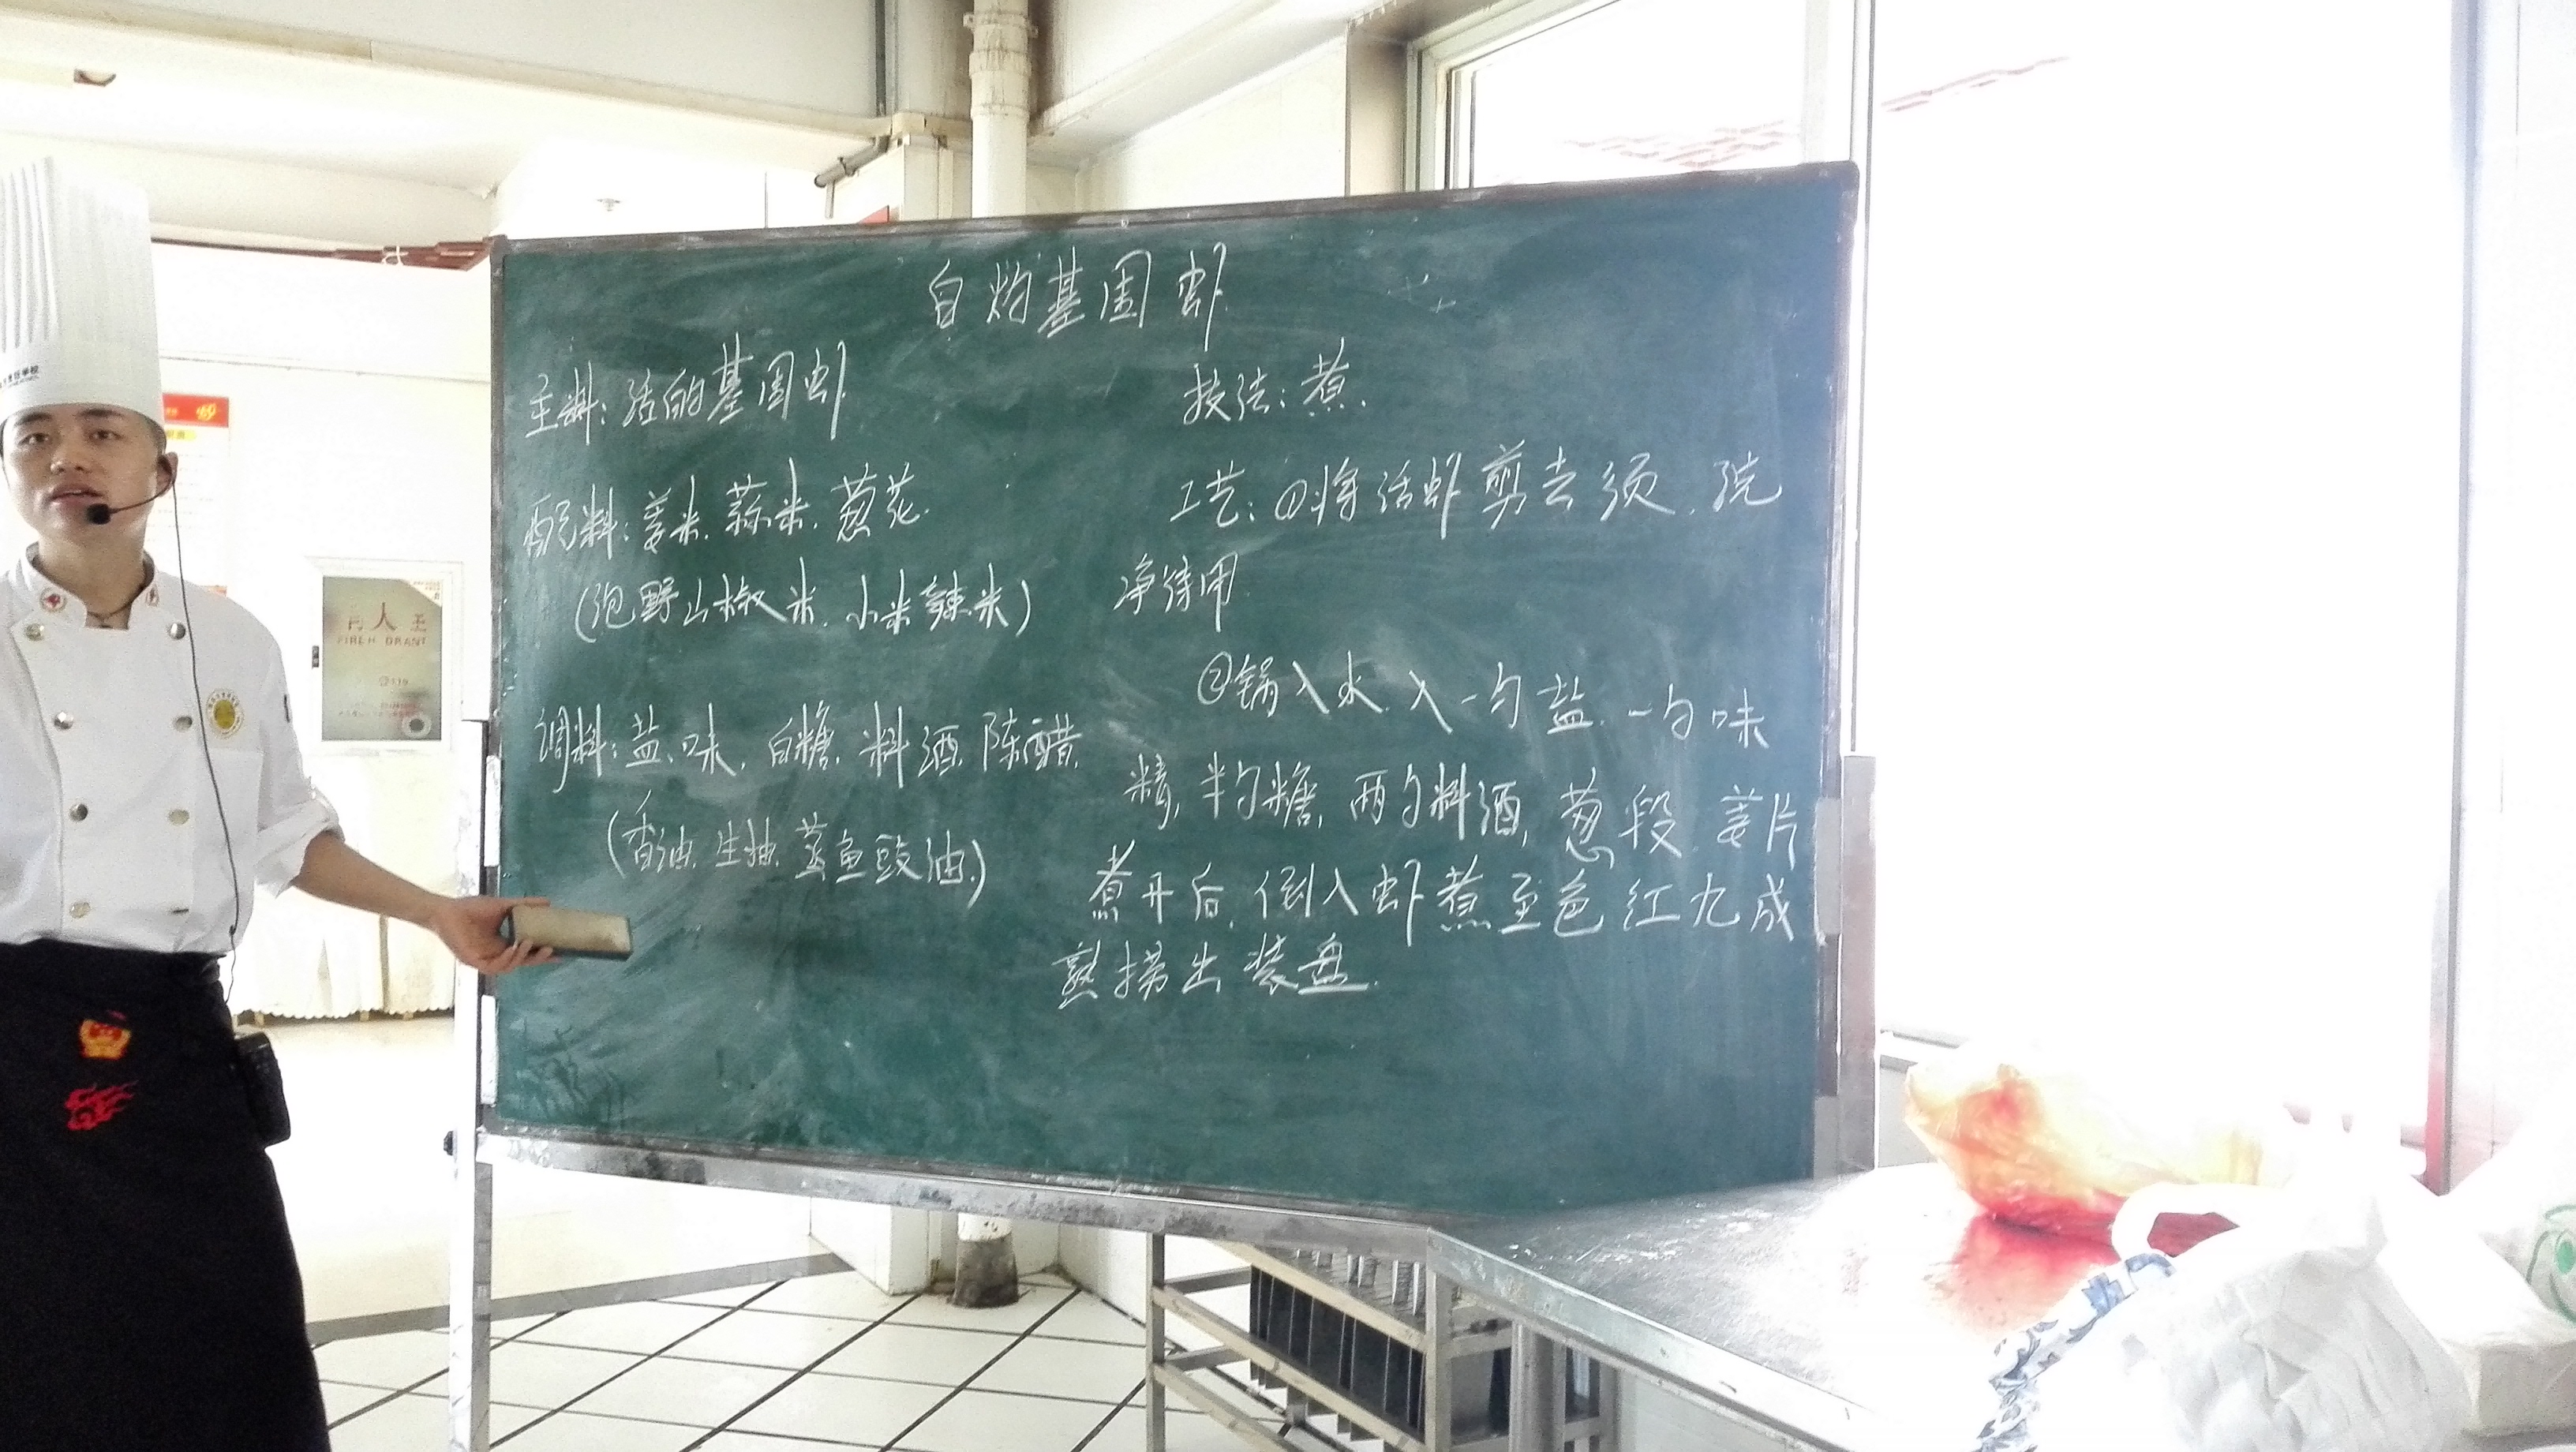 白灼基围虾
主料：活的基围虾
配料：姜米、蒜米、葱花.
（泡野山椒米、小米辣米）
调料：盐、味、白糖、料酒、陈醋、
（香油、生抽、蒸鱼豉油.）
技法：煮.
工艺：①将活虾剪去须、洗
净待用
②锅入水、入一勺盐、一勺味
精、半勺糖、两勺料酒、葱段 姜片
煮开后、倒入虾煮至色红九成
熟捞出装盘.
FIRE HYDRANT
119